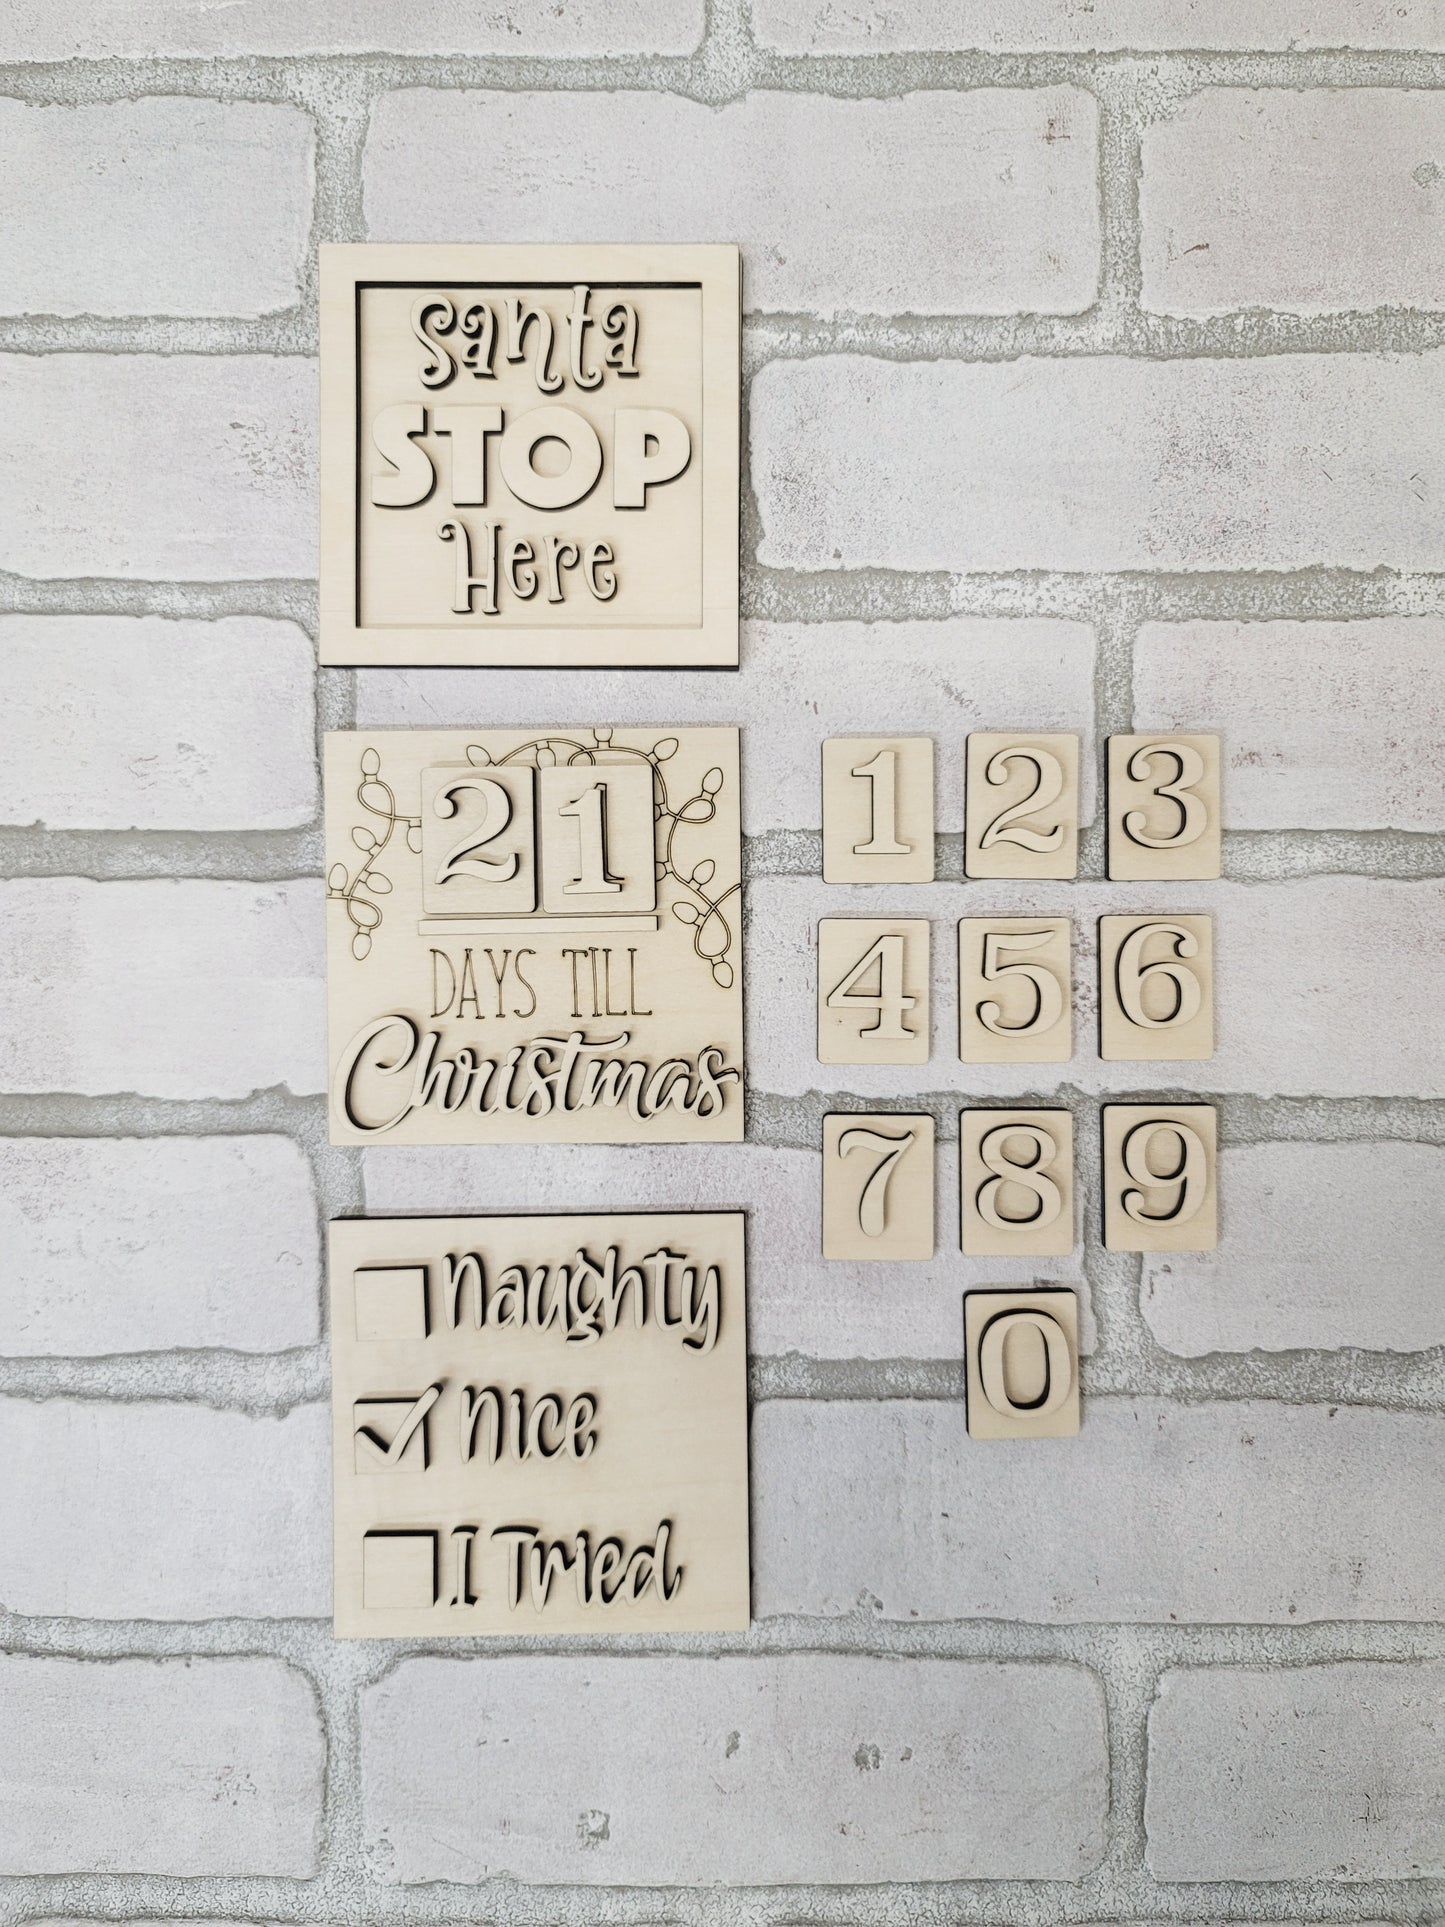 Santa
STOP
Here
21
DAYS TILL
Christmas
1 2 3
4 5 6
7 8 9
0
Naughty
Nice
I Tried